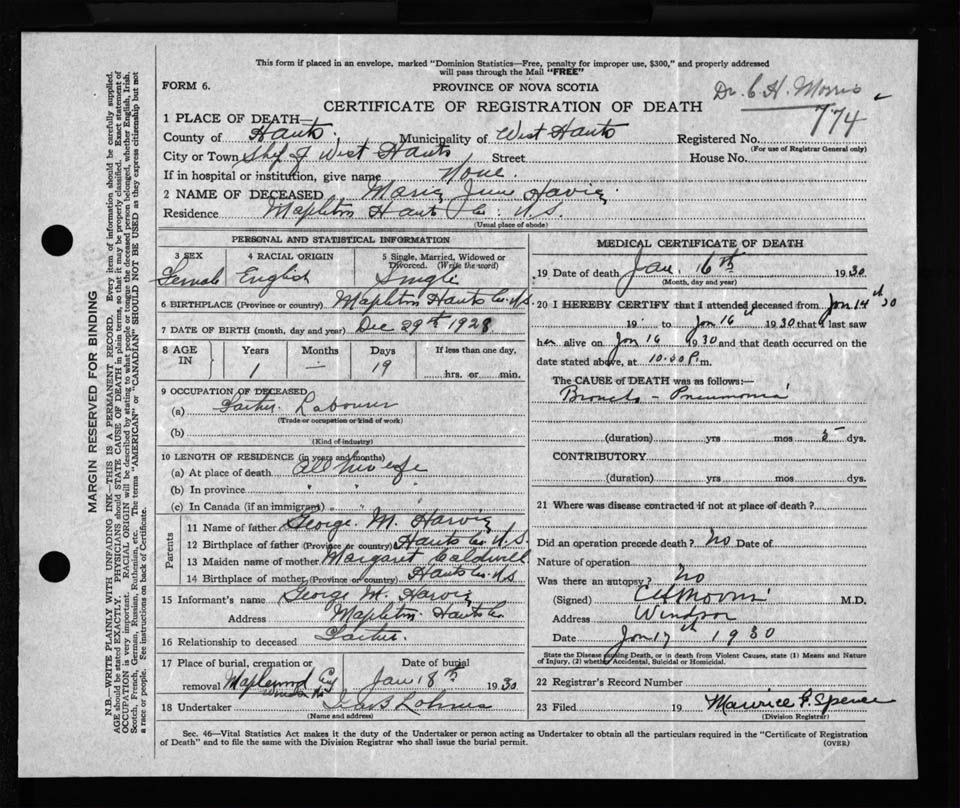 This form if placed in an envelope, marked "Dominion Statistics—Free, penalty for improper use, $300," and properly addressed
will pass through the Mail "FREE"
FORM 6.
PROVINCE OF NOVA SCOTIA
Dr. C. H. Morris
CERTIFICATE OF REGISTRATION OF DEATH
774
1 PLACE OF DEATH—
County of Hants. Municipality of West Hants Registered No.
(For use of Registrar General only)
City or Town West Hants Street House No.
If in hospital or institution, give name None.
2 NAME OF DECEASED June Harvie
Residence Mapleton Hants Co. N.S.
(Usual place of abode)
PERSONAL AND STATISTICAL INFORMATION
3 SEX 4 RACIAL ORIGIN 5 Single, Married, Widowed or
Divorced. (Write the word)
Female English Single
6 BIRTHPLACE (Province or country) Mapleton Hants Co. N.S.
7 DATE OF BIRTH (month, day and year) Dec 29th 1928
8 AGE IN Years Months Days If less than one day,
1 — 19 hrs. or min.
9 OCCUPATION OF DECEASED
(a) Father. Labourer
(Trade or occupation or kind of work)
(b)
(Kind of industry)
10 LENGTH OF RESIDENCE (in years and months)
(a) At place of death All her life
(b) In province " " "
(c) In Canada (if an immigrant) " " "
Parents
11 Name of father George. M. Harvie
12 Birthplace of father (Province or country) Hants Co. N.S.
13 Maiden name of mother Margaret Caldwell
14 Birthplace of mother (Province or country) Hants Co. N.S
15 Informant's name George M. Harvie
Address Mapleton Hants Co
16 Relationship to deceased Father.
17 Place of burial, cremation or Date of burial
removal Maplewood Cy Windsor NS Jan 18th 1930
18 Undertaker
(Name and address)
MEDICAL CERTIFICATE OF DEATH
19 Date of death Jan. 16th 1930
(Month, day and year)
20 I HEREBY CERTIFY that I attended deceased from Jan 14th 30
19 to Jan 16th 1930 that I last saw
her alive on Jan 16 1930 and that death occurred on the
date stated above, at 10.30 P.m.
The CAUSE OF DEATH was as follows:—
Broncho - Pneumonia
(duration) yrs mos 5 dys.
CONTRIBUTORY
(duration) yrs mos dys.
21 Where was disease contracted if not at place of death?
Did an operation precede death? No Date of
Nature of operation
Was there an autopsy? No
(Signed) C H Morris M.D.
Address Windsor
Date Jan 17th 1930
State the Disease causing Death, or in death from Violent Causes, state (1) Means and Nature
of Injury, (2) whether Accidental, Suicidal or Homicidal.
22 Registrar's Record Number
23 Filed 19 Maurice F. Spence
(Division Registrar)
Sec. 46—Vital Statistics Act makes it the duty of the Undertaker or person acting as Undertaker to obtain all the particulars required in the "Certificate of Registration
of Death" and to file the same with the Division Registrar who shall issue the burial permit. (OVER)
MARGIN RESERVED FOR BINDING
N.B.—WRITE PLAINLY WITH UNFADING INK—THIS IS A PERMANENT RECORD. Every item of information should be carefully supplied.
AGE should be stated EXACTLY. PHYSICIANS should STATE CAUSE OF DEATH in plain terms, so that it may be properly classified. Exact statement of
OCCUPATION is very important. RACIAL ORIGIN will be described by stating to what people or tongue the deceased person belonged, whether English, Irish,
Scotch, French, German, Russian, Ruthenian, etc. The terms "AMERICAN" or "CANADIAN" SHOULD NOT BE USED as they express citizenship but not
a race or people. Fee instructions on back of Certificate.